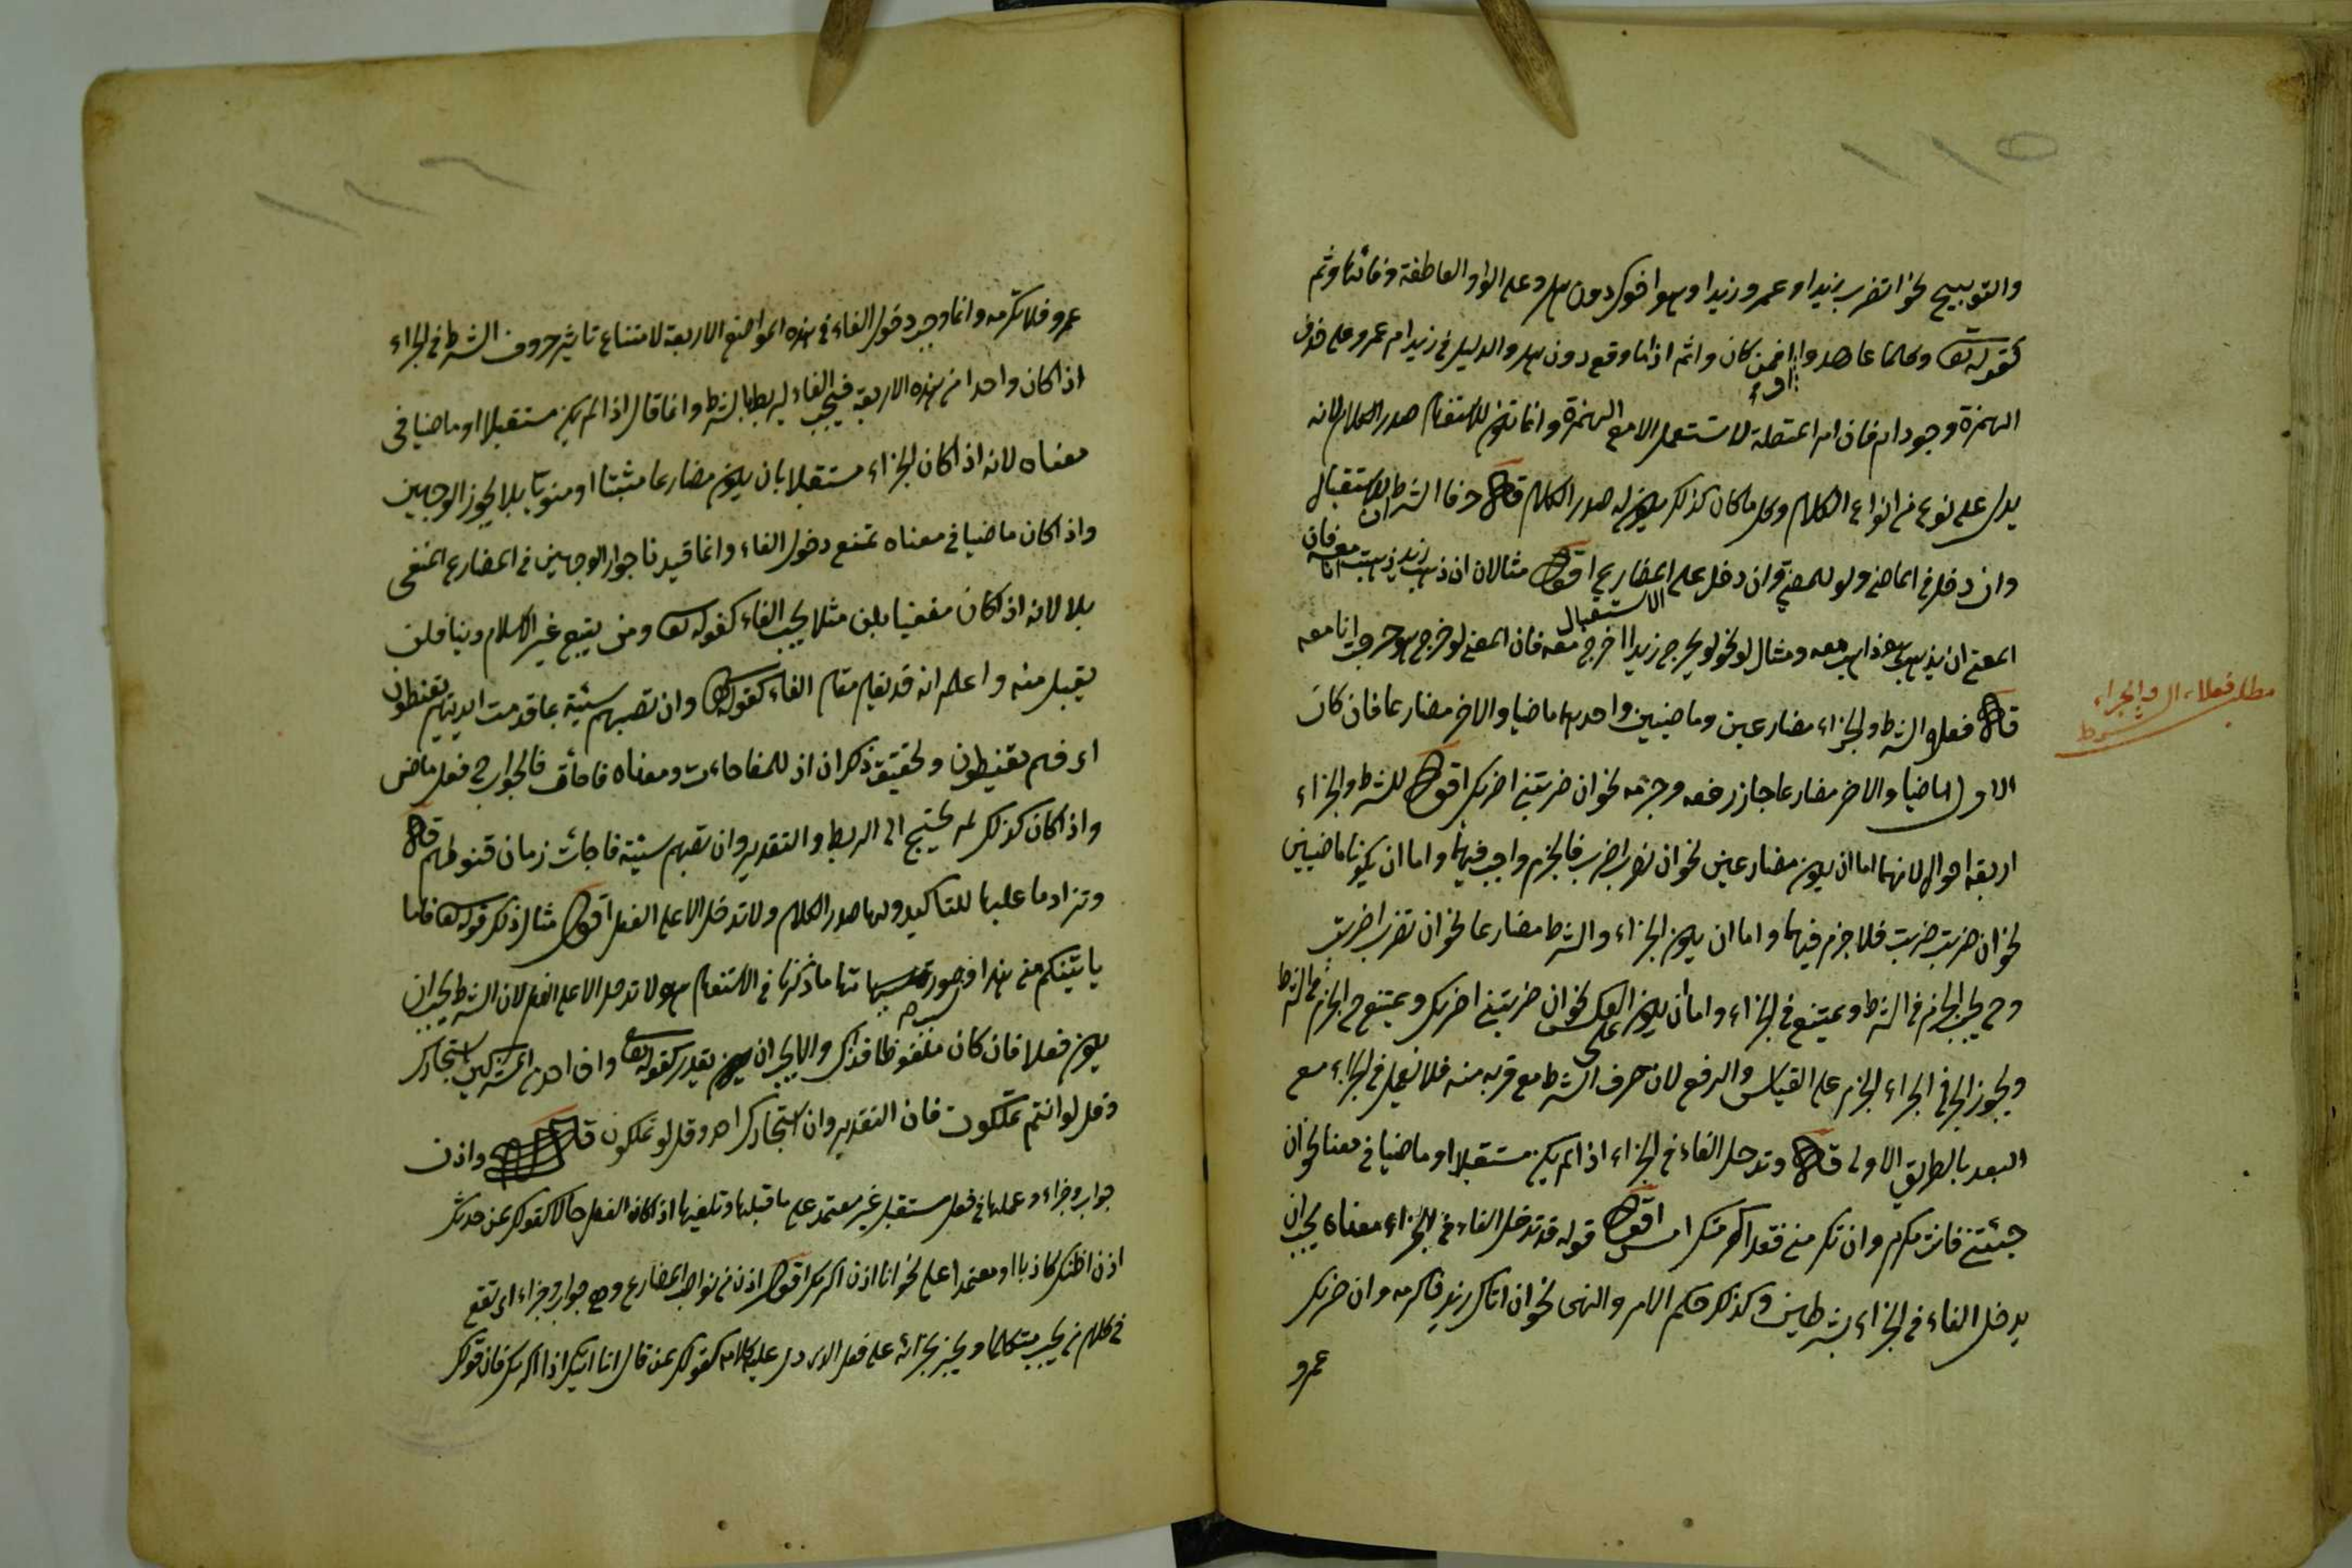 ١١٥
والتوبيخ نحو اتضرب زيدا وعمرو زيدا وهو اخوك دون هل وعلى الواو العاطفة وفائها وثم
كقوله تعالى وكلما عاهدوا افمن كان واثم اذا ما وقع دون هل والدليل في زيد ام عمرو على حذف
الهمزة وجود ام فان ام المتصلة لا تستعمل الا مع الهمزة وانما تكون للاستفهام صدر الكلام لانه
يدل على نوع من انواع الكلام وكل ما كان كذلك يكون له صدر الكلام قال حرفا الشرط ان للاستقبال
وان دخل في الماضي ولو للمضي وان دخل على المضارع اقول مثال ان ان ذهب زيد ذهبت معه فان
المعنى ان يذهب هو اذهب معه ومثال لو نحو لو يخرج زيد اخرج معه فان المعنى لو خرج هو خرجت انا معه
الاستقبال
قال فعل الشرط والجزاء مضارعين وماضيين واحدهما ماضيا والاخر مضارعا فان كان
مطلب فعلا الشرط والجزاء
الاول ماضيا والاخر مضارعا جاز رفعه وجزمه نحو ان ضربتني اضربك اقول للشرط والجزاء
اربعة احوال لانهما اما ان يكون مضارعين نحو ان تضرب اضرب فالجزم واجب فيهما واما ان يكونا ماضيين
نحو ان ضربت ضربت فلا جزم فيهما واما ان يكون الجزاء والشرط مضارعا نحو ان تضرب اضربت
وح يجب الجزم في الشرط ويمتنع في الجزاء واما ان يكون على العكس نحو ان ضربتني اضربك ويمتنع ح الجزم في الشرط
ويجوز في الجزاء الجزم على القياس والرفع لان حرف الشرط مع قربه منه فلا تعمل في الجزاء مع
البعد بالطريق الاولى قال وتدخل الفاء في الجزاء اذا لم يكن مستقبلا او ماضيا في معناه نحو ان
جئتني فانت مكرم وان تكرمني فقد اكرمتك امس اقول قوله قد تدخل الفاء في الجزاء معناه يجب ان
يدخل الفاء في الجزاء بشرطين وكذلك حكم الامر والنهى نحو ان اتاك زيد فاكرمه وان ضربك
عمرو
١١٦
عمرو فلا تكرمه وانما وجب دخول الفاء في هذه المواضع الاربعة لامتناع تاثير حروف الشرط في الجزاء
اذا كان واحدا من هذه الاربعة فيجب الفاء ليربط بالشرط وانما قال اذا لم يكن مستقبلا او ماضيا في
معناه لانه اذا كان الجزاء مستقبلا بان يكون مضارعا مثبتا او منويا بلا يجوز الوجهين
واذا كان ماضيا في معناه تمتنع دخول الفاء وانما قيدنا جواز الوجهين في المضارع المنفى
بلا لانه اذا كان منفيا بلن مثلا يجب الفاء كقوله تعالى ومن يبتغ غير الاسلام دينا فلن
يقبل منه واعلم انه قد يقام مقام الفاء كقوله تعالى وان تصبهم سيئة بما قدمت ايديهم يقنطون
اى فهم يقنطون وتحقيق ذكر ان اذ للمفاجاءت ومعناه فاجأت فالجواب ح فعل ماض
واذا كان كذلك لم يحتج الى الربط والتقدير وان تصبهم سيئة فاجأت زمان قنوطهم قال
وتزاد ما عليها للتاكيد ولها صدر الكلام ولا تدخل الا على الفعل اقول مثال ذلك قوله تعالى فاما
ياتينكم منى هدى وصورتها ما ذكرنا في الاستفهام وهو لا تدخل الا على الفعل لان الشرط يجب ان
يكون فعلا فان كان ملفوظا فذاك والا يجب ان يكون يقدر كقوله تعالى وان احد من المشركين استجارك
وقل لو انتم تملكون فان التقدير وان استجارك احد وقل لو تملكون قال واذن
جواب وجزاء وعملها في فعل مستقبل غير معتمد على ما قبلها وتلغيها اذا كان الفعل حالا كقولك لمن حدثك
اذن اظنك كاذبا او معتمدا على نحو انا اذن اكرمك اقول اذن من نواصب المضارع وهى جواب وجزاء اى تقع
في كلام من يجيب متكلما ويخبر بجزائه على فعل الذى دل عليه كلامه كقولك لمن قال انا اتيك اذا اكرمك فان قولك